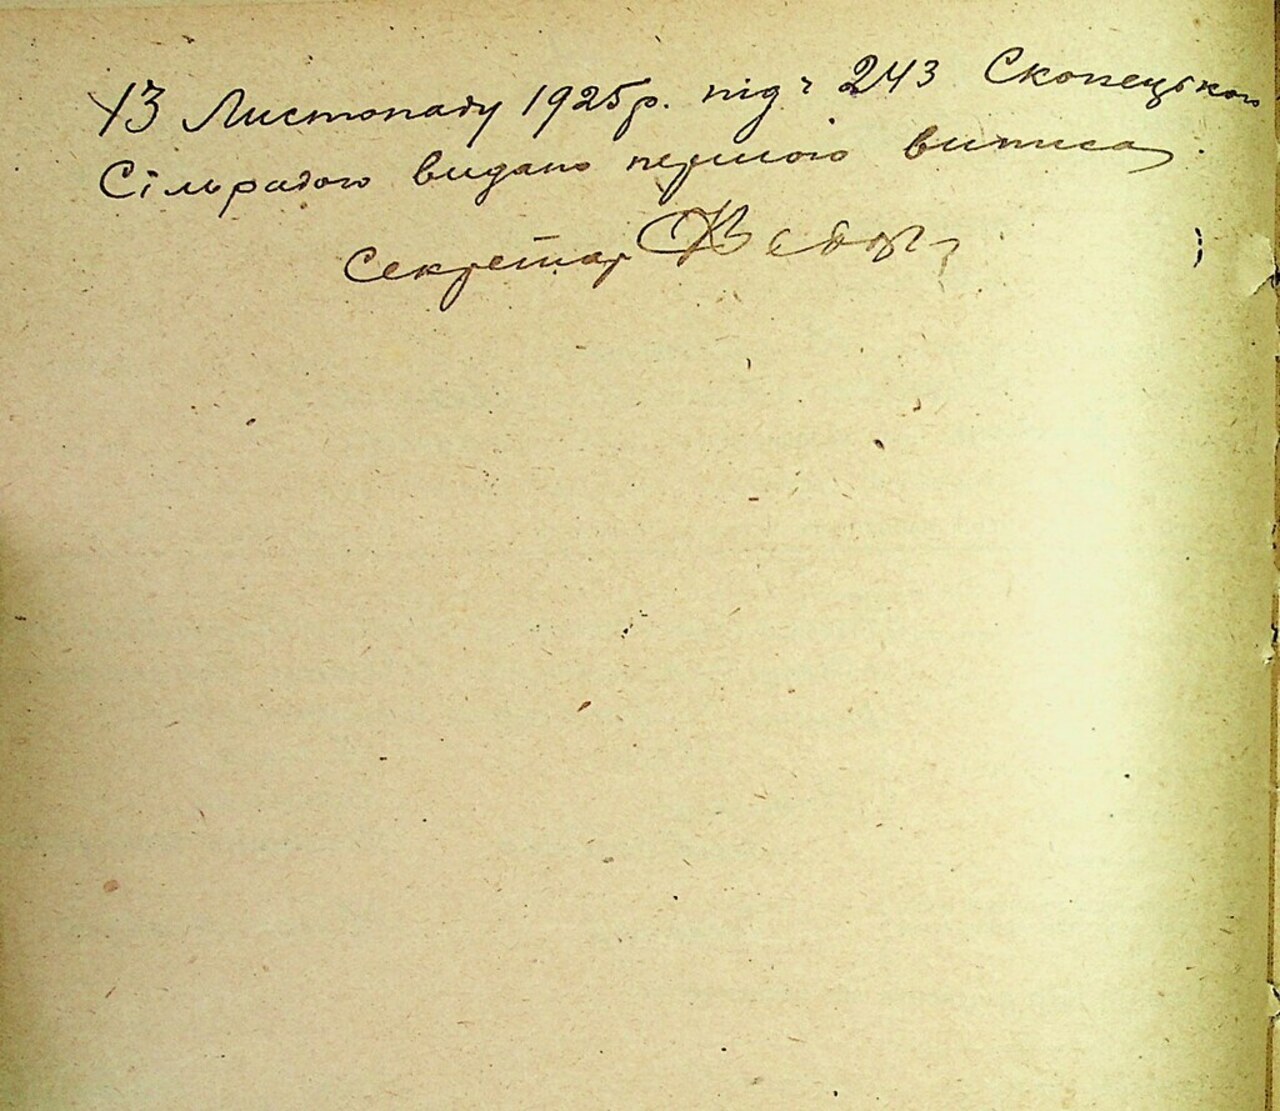 13 Листопаду 1925 р. під ч 243 Скопецькою
Сільрадою видано першого виписа.
Секретар